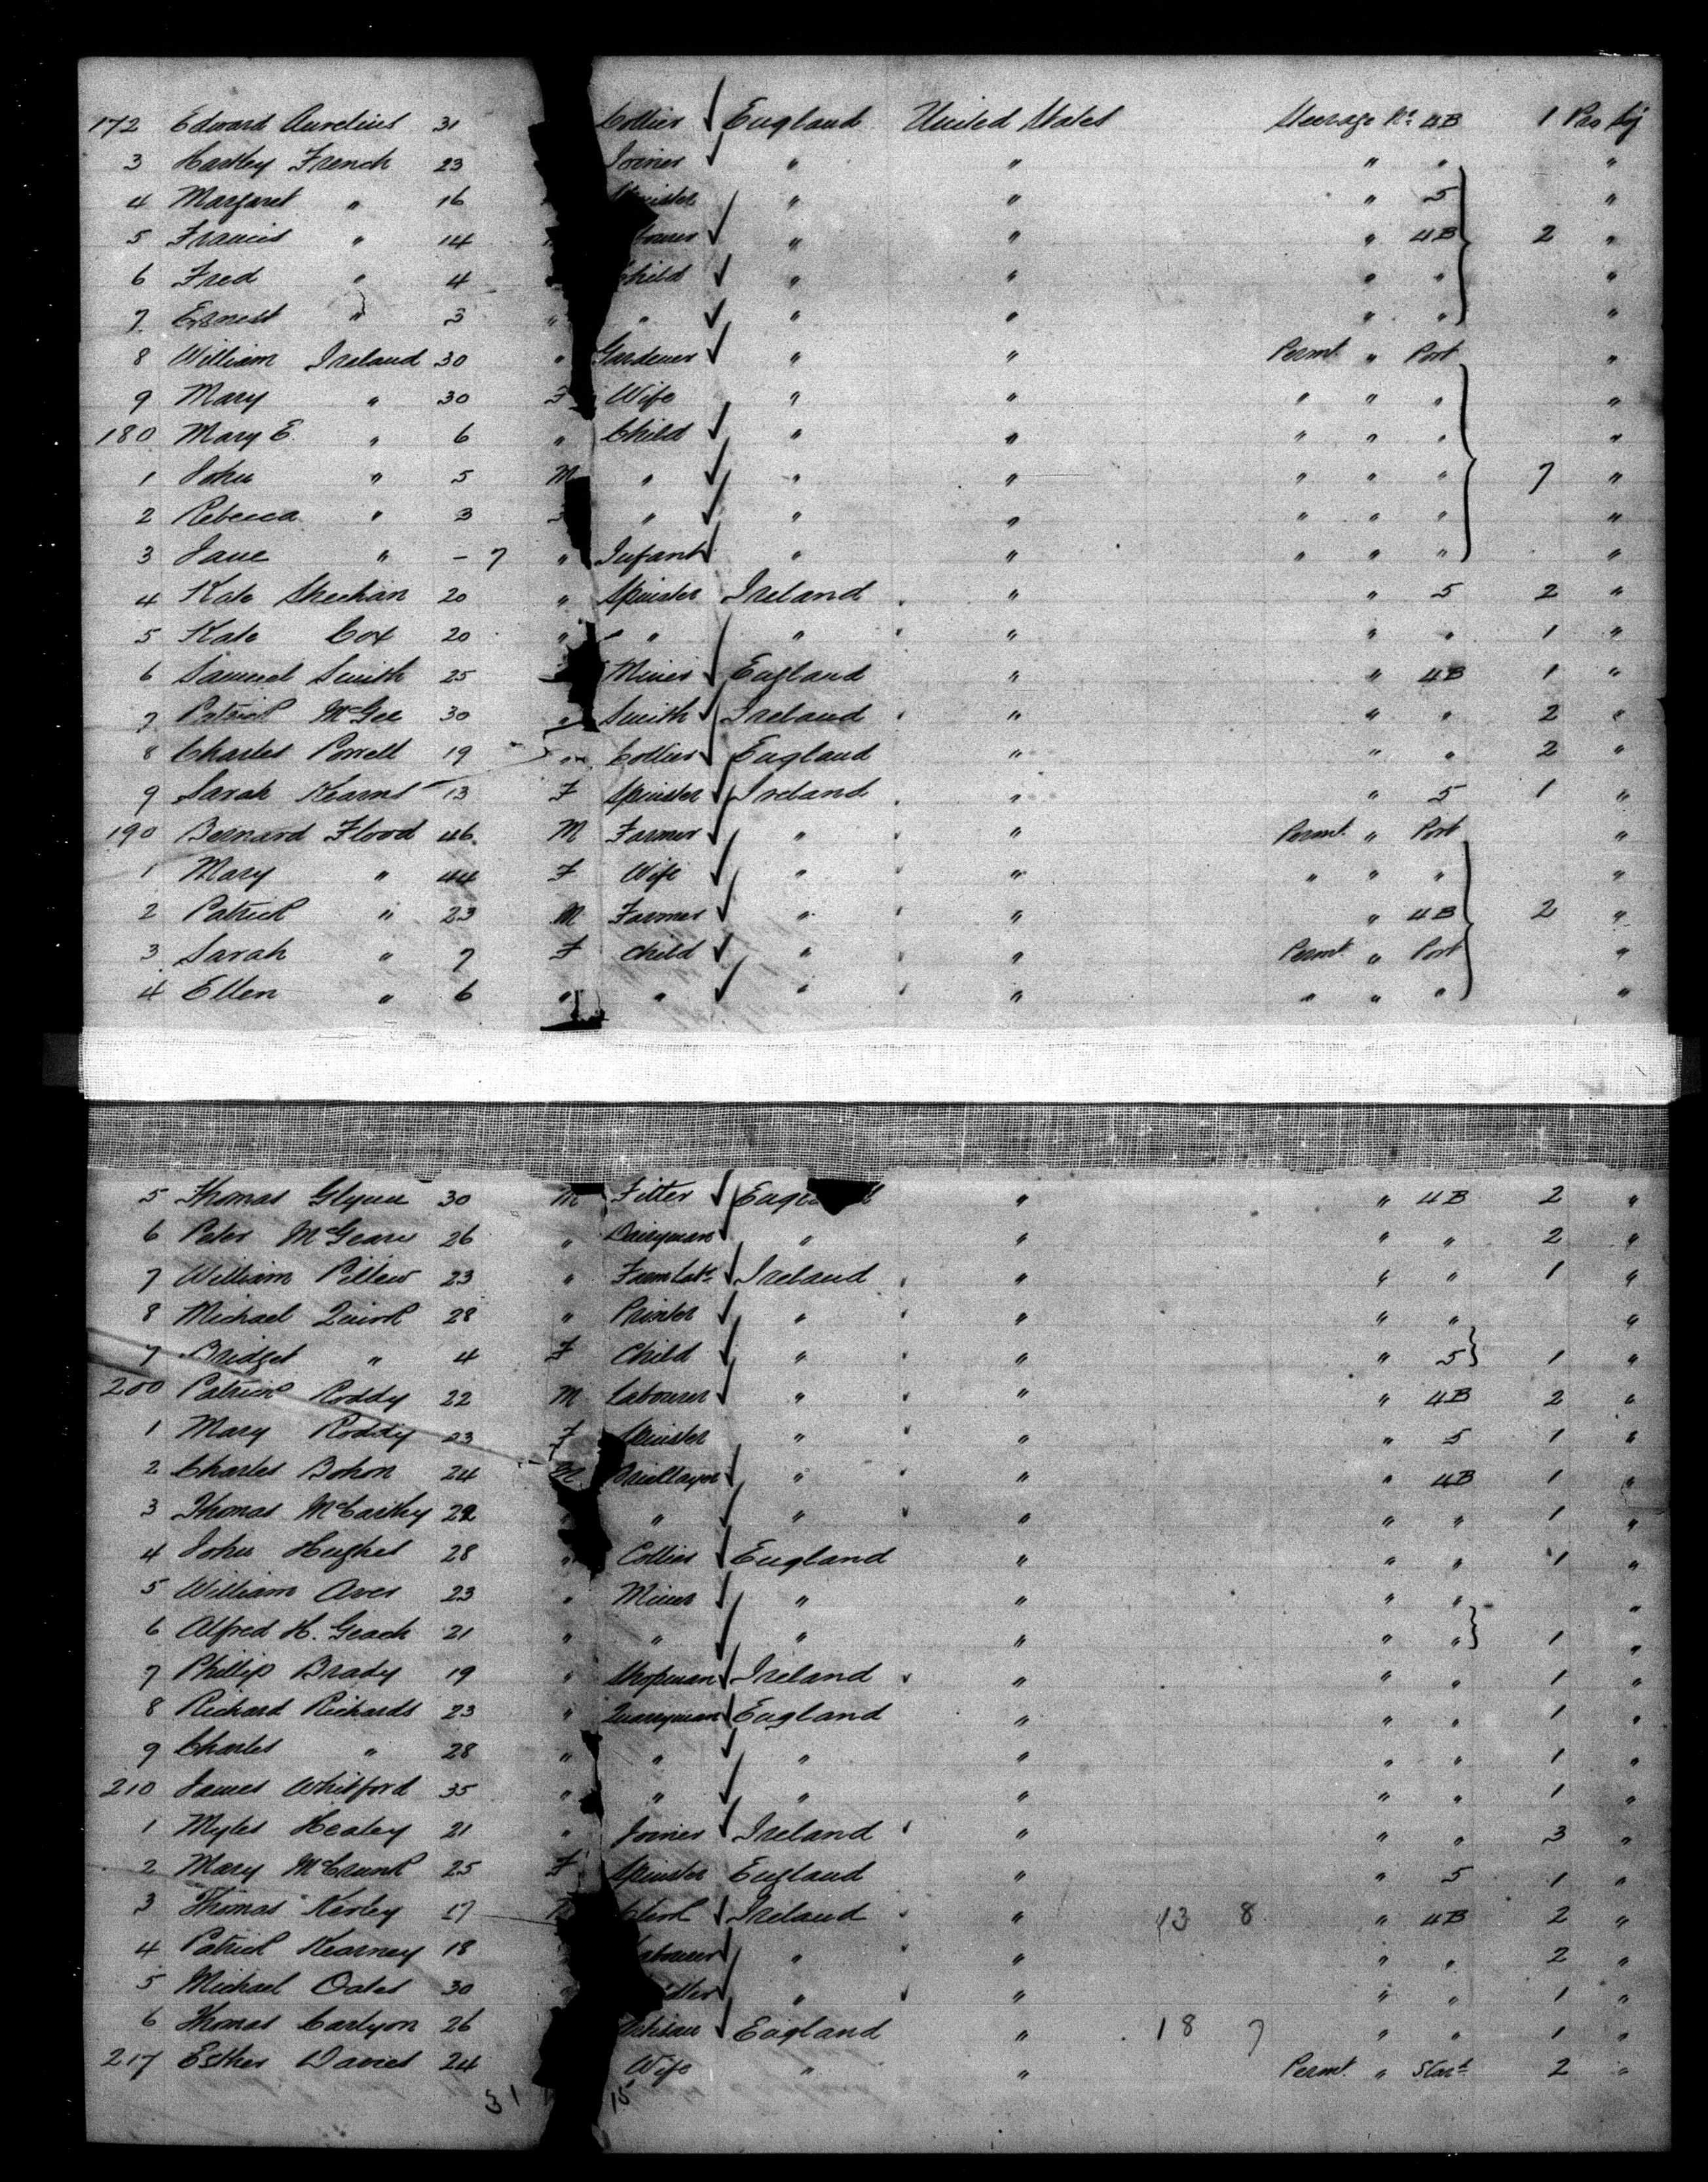 172 Edward Aurelius 31 Collier ✓ England United States Steerage No 4B 1 Pro Sj
3 Hartley French 23 Joiner ✓ " " " " "
4 Margaret " 16 " " " 5 "
5 Francis " 14 ✓ " " " 4B 2 "
6 Fred " 4 Child ✓ " " " " "
7 Ernest " 3 " " ✓ " " " " "
8 William Ireland 30 " Gardener ✓ " " Permt " Port "
9 Mary " 30 F Wife " " " " " "
180 Mary E. " 6 " Child ✓ " " " " " "
1 John " 5 M " ✓ " " " " " 7 "
2 Rebecca " 3 " ✓ " " " " " "
3 Jane " - 7 " Infant ✓ " " " " " "
4 Kate Sheehan 20 " Spinster Ireland " " 5 2 "
5 Kate Cox 20 " " " " " " 1 "
6 Samuel Smith 25 Miner ✓ England " " 4B 1 "
7 Patrick McGee 30 " Smith ✓ Ireland " " " 2 "
8 Charles Powell 19 " Collier ✓ England " " " 2 "
9 Sarah Kearns 13 F Spinster ✓ Ireland " " 5 1 "
190 Bernard Flood 46 M Farmer ✓ " " Permt " Port "
1 Mary " 44 F Wife ✓ " " " " " "
2 Patrick " 23 M Farmer ✓ " " " 4B 2 "
3 Sarah " 7 F Child ✓ " " Permt " Port "
4 Ellen " 6 " " ✓ " " " " " "
5 Thomas Glynn 30 M Fitter ✓ " " 4B 2 "
6 Peter McGeary 26 " Dairyman ✓ " " " " 2 "
7 William Pillew 23 " Farm Labr ✓ Ireland " " " 1 "
8 Michael Quirk 28 " Printer ✓ " " " " "
7 Bridget " 4 F Child ✓ " " " 5 1 "
200 Patrick Roddy 22 M Labourer ✓ " " " 4B 2 "
1 Mary Roddy 23 F Spinster " " " 5 1 "
2 Charles Bohon 24 M Bricklayer ✓ " " " 4B 1 "
3 Thomas McCarthy 22 " ✓ " " " " 1 "
4 John Hughes 28 " Collier ✓ England " " " 1 "
5 William Aver 23 " Miner ✓ " " " " "
6 Alfred H. Geach 21 " " ✓ " " " " 1 "
7 Phillip Brady 19 " Shopman ✓ Ireland " " " 1 "
8 Richard Richards 23 " Quarryman ✓ England " " " 1 "
9 Charles " 28 " " ✓ " " " " 1 "
210 James Whitford 35 " " ✓ " " " " 1 "
1 Myles Healey 21 " Joiner ✓ Ireland " " " 3 "
2 Mary McCrunk 25 F Spinster England " " 5 1 "
3 Thomas Kerley 17 Clerk ✓ Ireland " 13 8 " 4B 2 "
4 Patrick Kearney 18 ✓ " " " " 2 "
5 Michael Oates 30 ✓ " " " " 1 "
6 Thomas Carlyon 26 ✓ England " 18 7 " " 1 "
217 Esther Davies 24 Wife " " Permt " Start 2 "
31 15